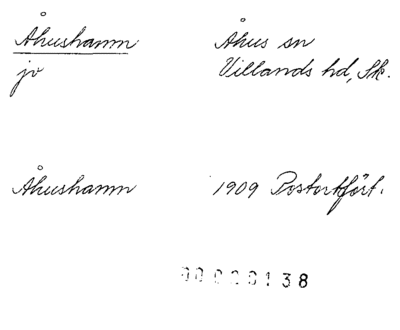 Åhushamn Åhus sn
jv Villands hd, Sk.
Åhushamn 1909 Postortfört.
00000138